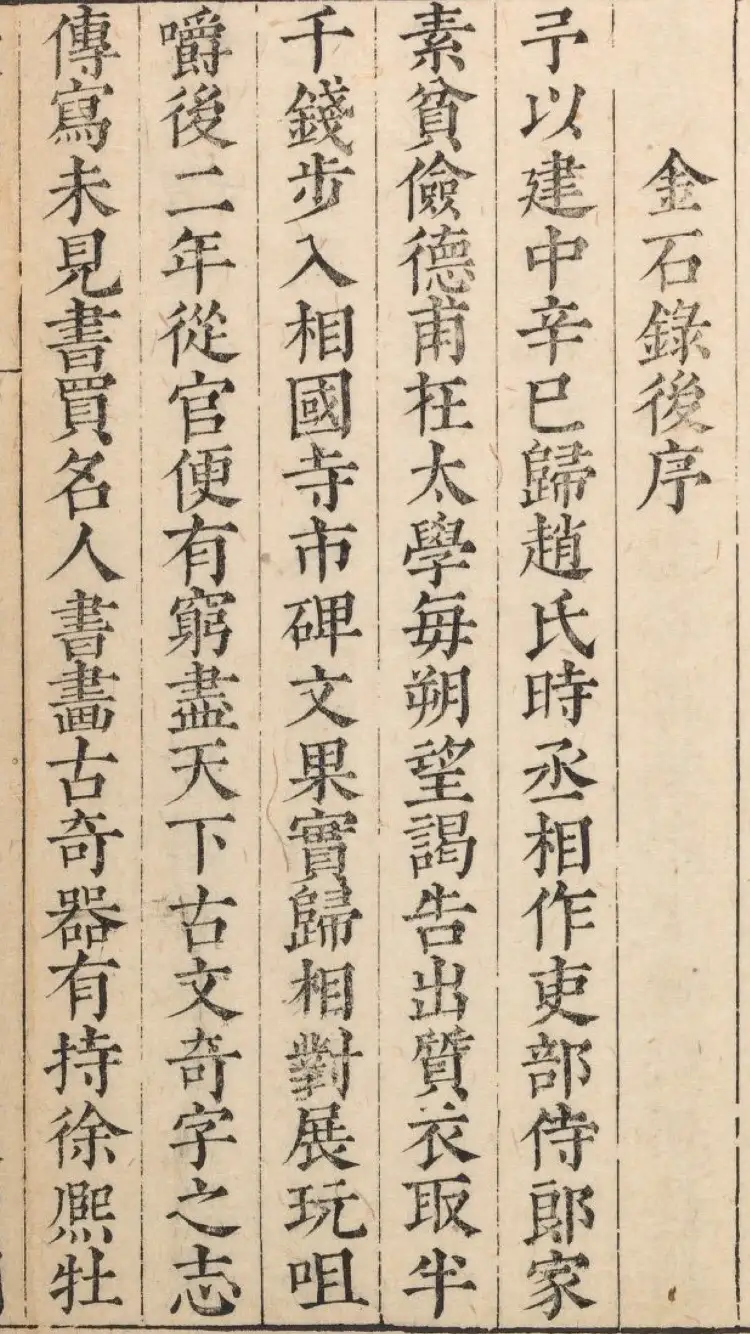 金石錄後序
予以建中辛巳歸趙氏時丞相作吏部侍郎家
素貧儉德甫在太學每朔望謁告出質衣取半
千錢步入相國寺市碑文果實歸相對展玩咀
嚼後二年從官便有窮盡天下古文奇字之志
傳寫未見書買名人書畫古奇器有持徐熈牡